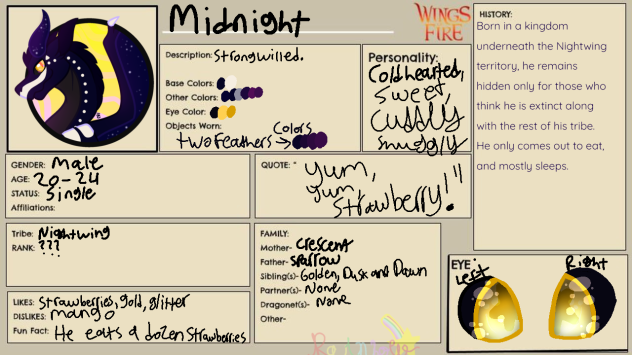 Midnight
WINGS
OF
FIRE
Description: Strongwilled.
Base Colors:
Other Colors:
Eye Color:
Objects Worn:
two Feathers → Colors
Personality:
Coldhearted,
Sweet,
Cuddly
snuggly
HISTORY:
Born in a kingdom
underneath the Nightwing
territory, he remains
hidden only for those who
think he is extinct along
with the rest of his tribe.
He only comes out to eat,
and mostly sleeps.
GENDER: Male
AGE: 20-24
STATUS: Single
Affiliations:
QUOTE: " Yum,
Yum,
Strawberry! "
Tribe: Nightwing
RANK: ???
FAMILY:
Mother- Crescent
Father- Sparrow
Sibling(s)- Golden, Dusk and Dawn
Partner(s)- None
Dragonet(s)- None
Other-
LIKES: Strawberries, gold, glitter
DISLIKES: mango
Fun Fact: He eats a dozen strawberries
EYE:
Left
Right